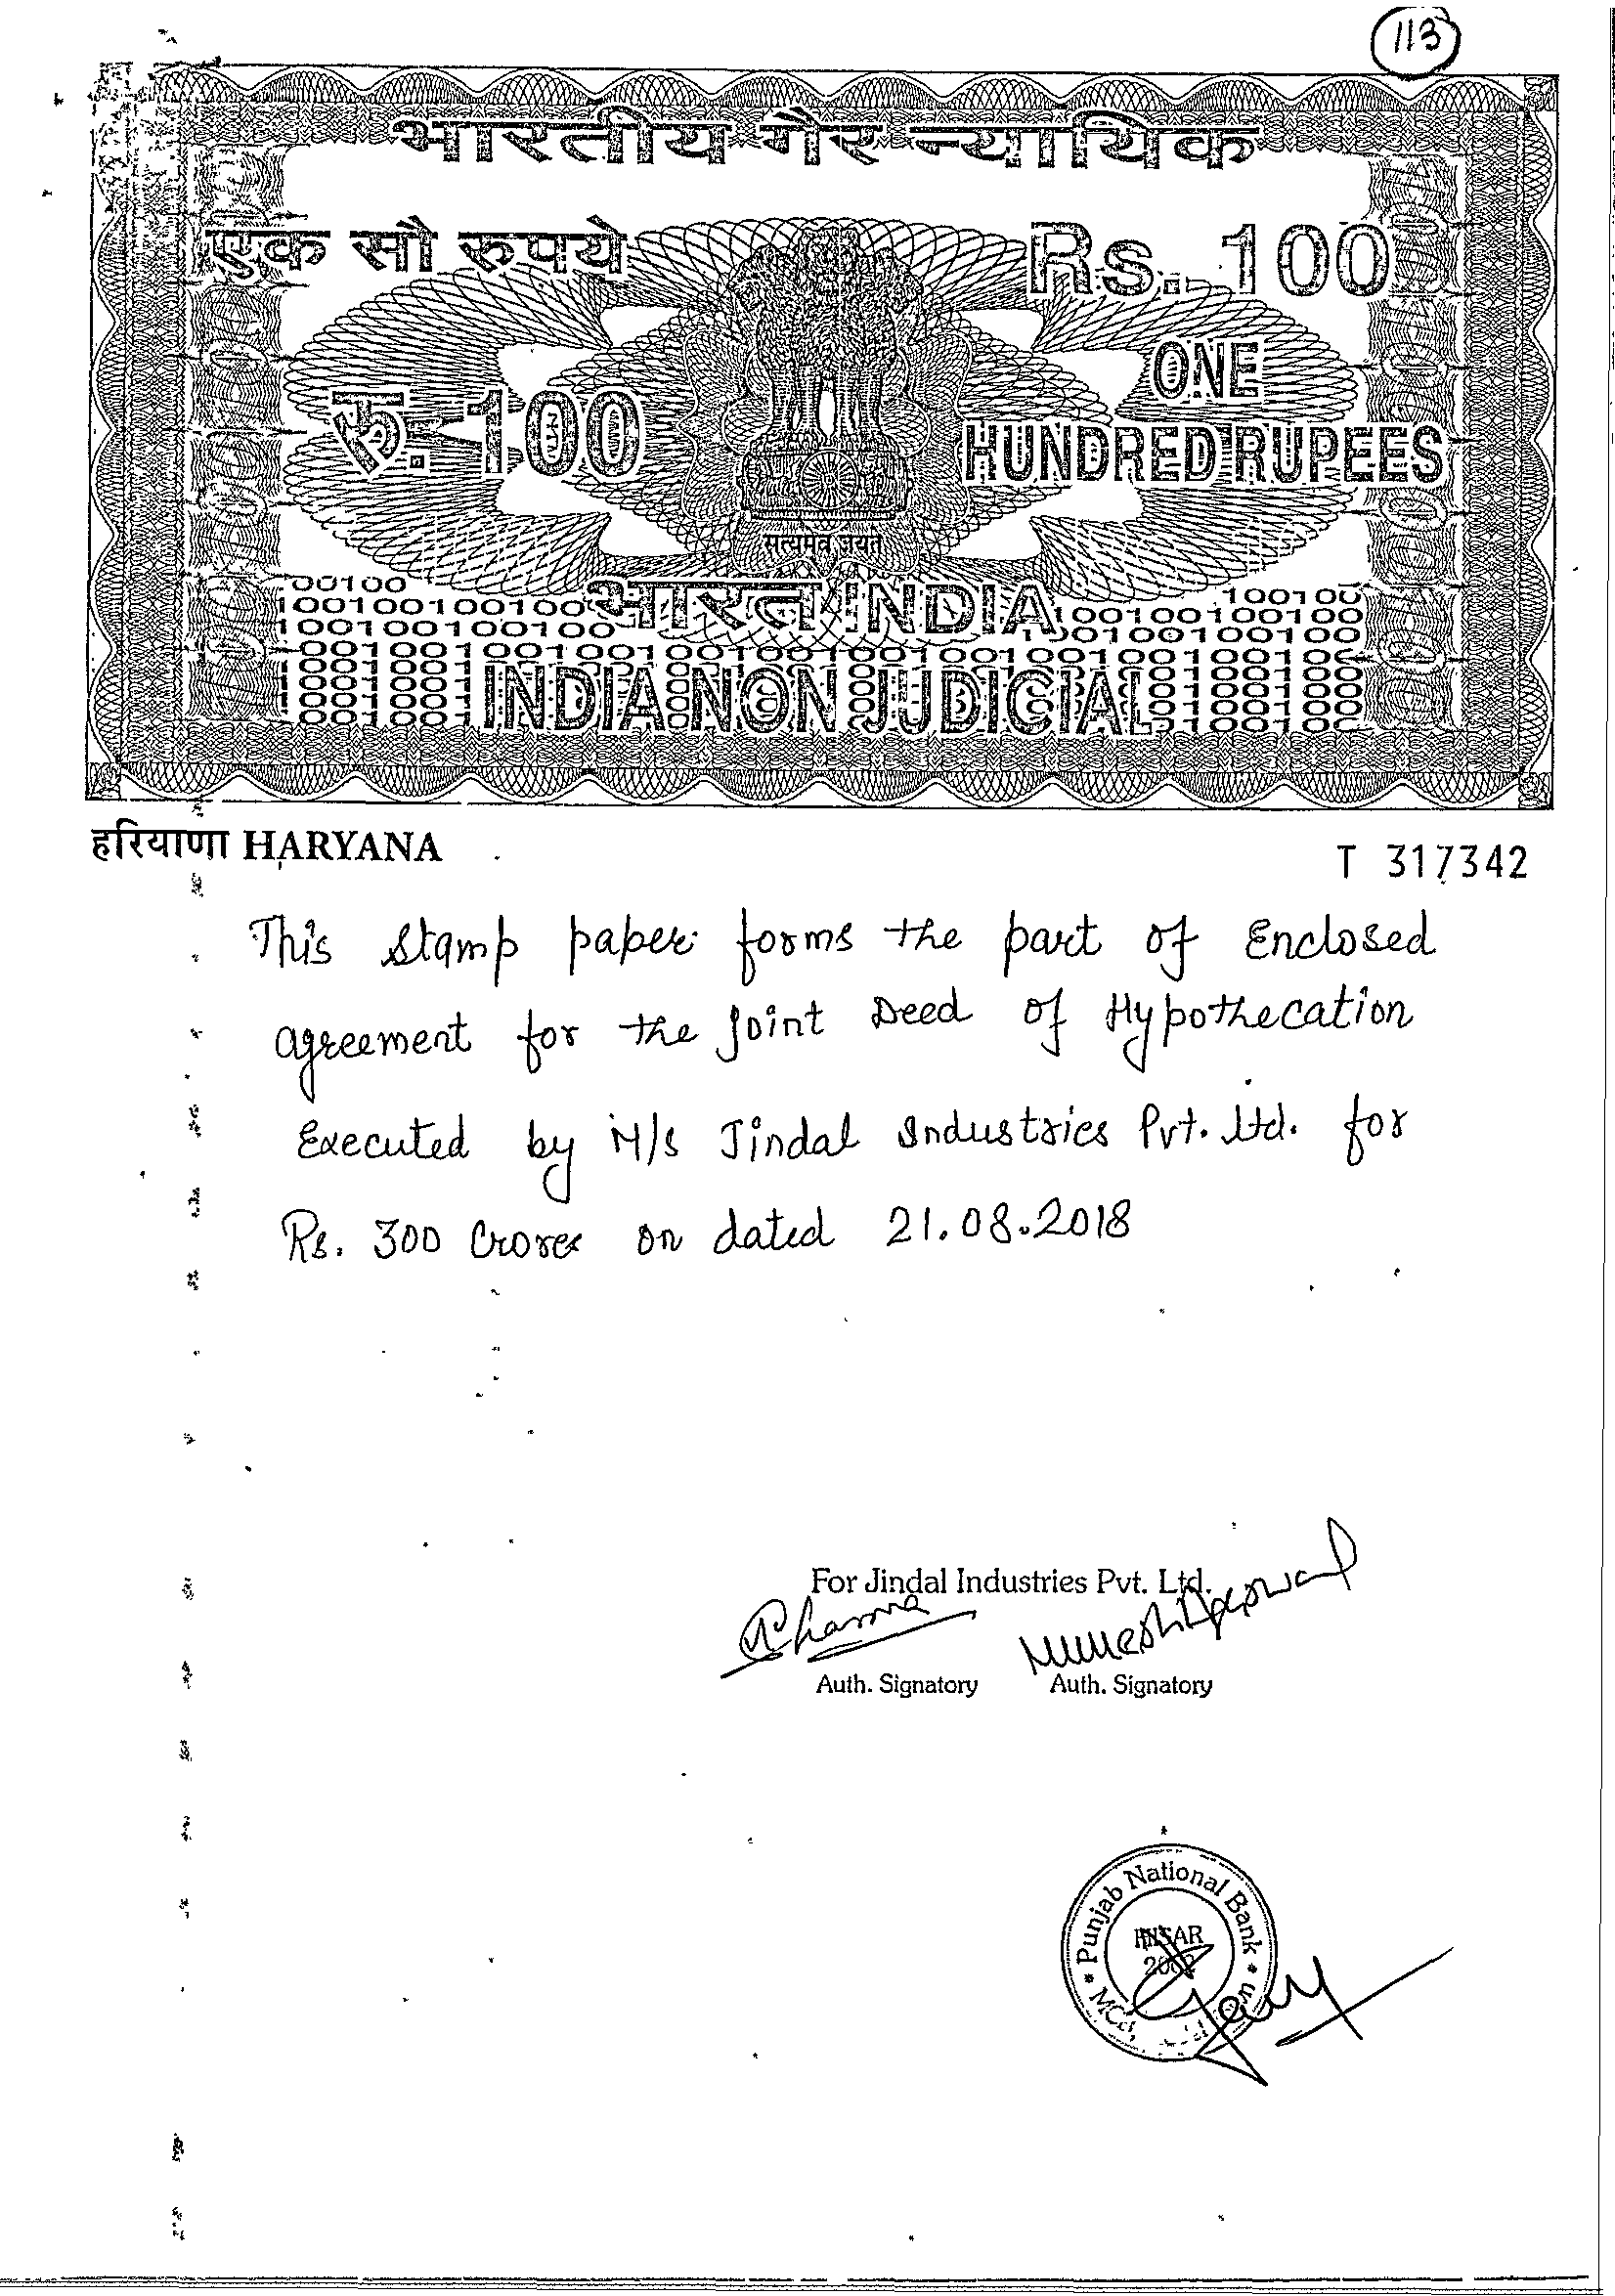 113
भारतीय गैर न्यायिक
एक सौ रुपये
Rs. 100
रु. 100
ONE
HUNDRED RUPEES
सत्यमेव जयते
भारत INDIA
INDIA NON JUDICIAL
हरियाणा HARYANA
T 317342
This stamp paper forms the part of Enclosed
agreement for the Joint Deed of Hypothecation
Executed by M/s Jindal Industries Pvt. Ltd. for
Rs. 300 Crores on dated 21.08.2018
For Jindal Industries Pvt. Ltd.
Auth. Signatory Auth. Signatory
Punjab National Bank
HISSAR